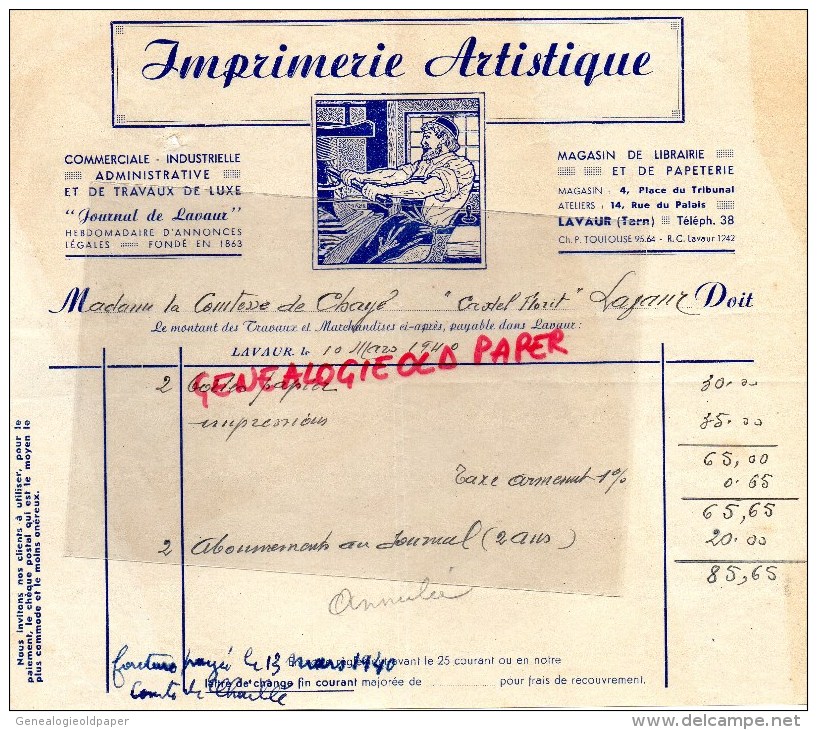 Imprimerie Artistique
COMMERCIALE - INDUSTRIELLE
ADMINISTRATIVE
ET DE TRAVAUX DE LUXE
"Journal de Lavaur"
HEBDOMADAIRE D'ANNONCES
LÉGALES FONDÉ EN 1863
MAGASIN DE LIBRAIRIE
ET DE PAPETERIE
MAGASIN : 4, Place du Tribunal
ATELIERS : 14, Rue du Palais
LAVAUR (Tarn) Téléph. 38
Ch. P. TOULOUSE 95.64 - R.C. Lavaur 1242
Madame la Comtesse de "Castel Florit" Lavaur Doit
Le montant des Travaux et Marchandises ci-après, payable dans Lavaur :
LAVAUR, le 10 Mars 1940
GENEALOGIE OLD PAPER
2 papier 30.00
impressions 35.00
65,00
Taxe armement 1% 0.65
65,65
2 Abonnements au Journal (2 ans) 20.00
85,65
Annulée
Nous invitons nos clients à utiliser, pour le
paiement, le chèque postal qui est le moyen le
plus commode et le moins onéreux.
facture payée le 13 mars 1940
avant le 25 courant ou en notre
Comte de
lettre de change fin courant majorée de pour frais de recouvrement.
Genealogieoldpaper
delcampe.net